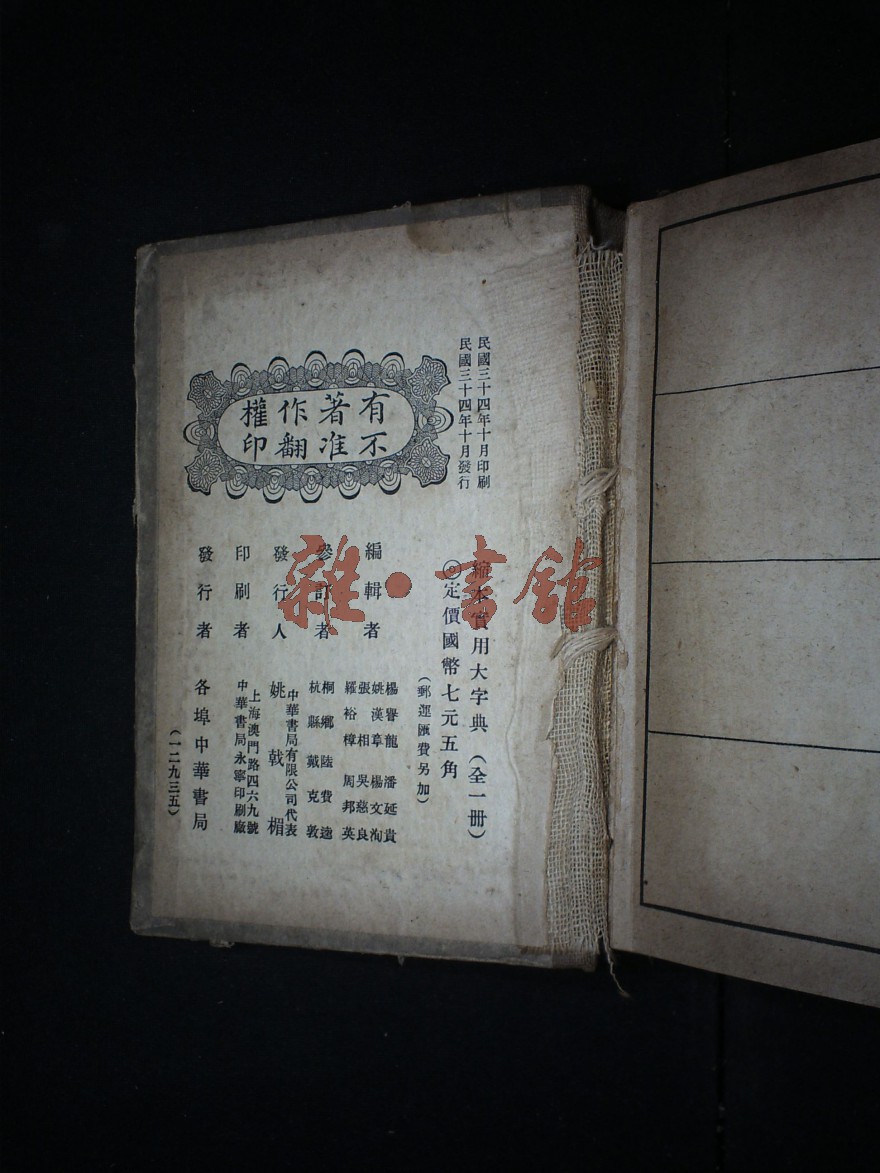 民國三十四年十月印刷
民國三十四年十月發行
有著作權
不准翻印
縮本實用大字典（全一冊）
定價國幣七元五角
（郵運匯費另加）
編輯者
楊譽龍 潘延貴
姚漢章 楊文洵
張相 吳慈良
羅裕樟 周邦英
參訂者
桐鄉陸費逵
杭縣戴克敦
發行人
中華書局有限公司代表
姚戟楣
印刷者
上海澳門路四六九號
中華書局永寧印刷廠
發行者
各埠中華書局
（一二九三五）
雜·書館